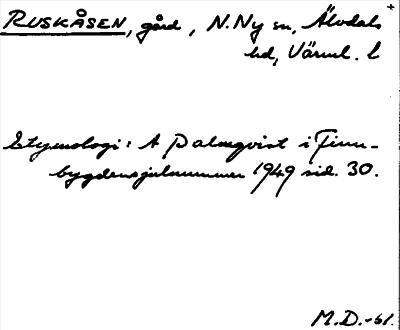 RUSKÅSEN, gård, N. Ny sn, Älvdals
hd, Värml. l
Etymologi: A Palmqvist i Finn-
bygdensjulnummer 1949 sid. 30.
M.D.-61.